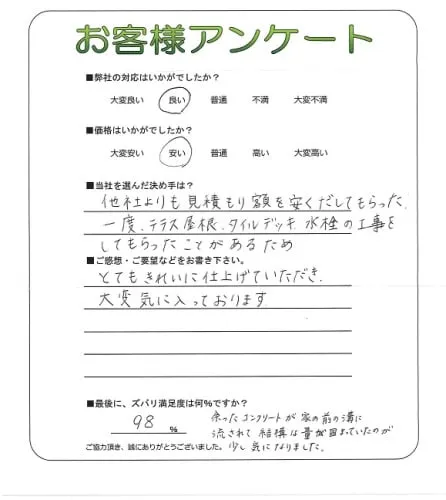 お客様アンケート
■弊社の対応はいかがでしたか？
大変良い 良い 普通 不満 大変不満
■価格はいかがでしたか？
大変安い 安い 普通 高い 大変高い
■当社を選んだ決め手は？
他社よりも見積もり額を安くだしてもらった.
一度、テラス屋根、タイルデッキ 水栓の工事を
してもらったことがあるため
■ご感想・ご要望などをお書き下さい。
とてもきれいに仕上げていただき.
大変気に入っております.
■最後に、ズバリ満足度は何％ですか？
98 %
余ったコンクリートが家の前の溝に
流されて結構な量が固まっていたのが
少し気になりました.
ご協力頂き、誠にありがとうございました。